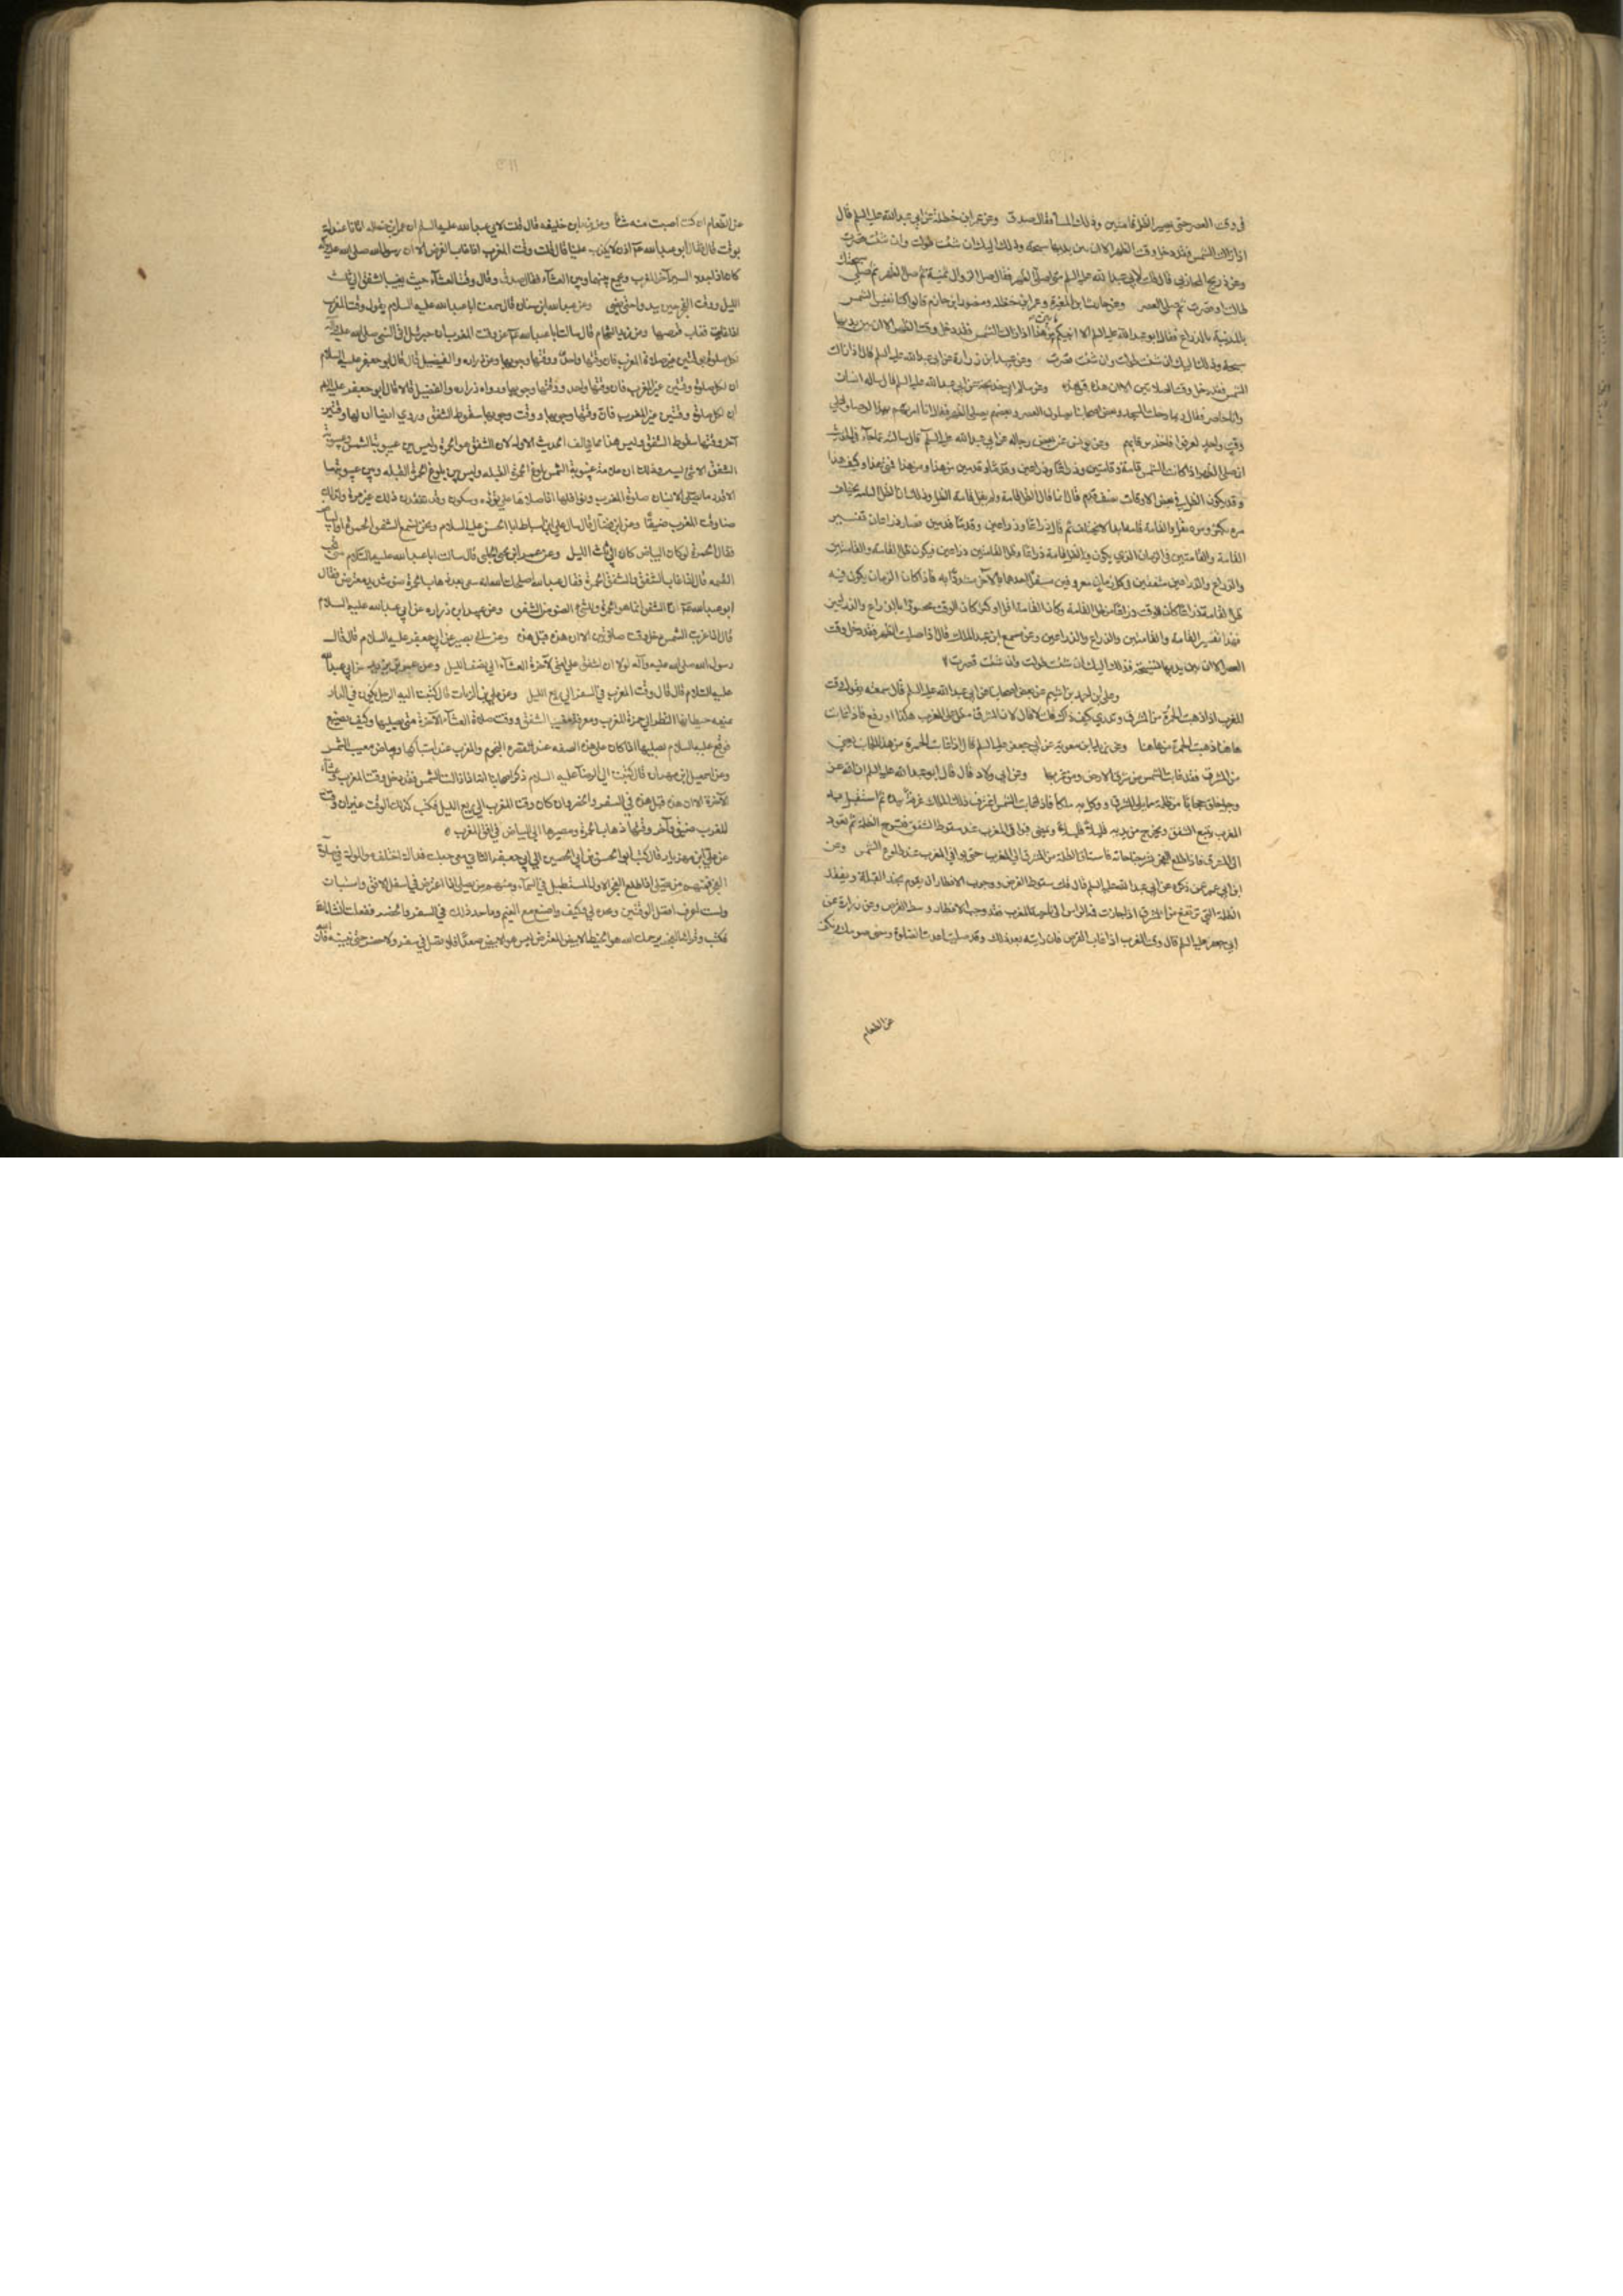 في وقت العصر حتى يصير الظل قامتين وذلك المساء فقال صدق وعن عمر ابن حنظلة عن ابي عبد الله عليه السلم قال
اذا زالت الشمس فقد دخل وقت الظهر الا ان بين يديها سبحة وذلك اليك ان شئت طولت وان شئت قصرت
وعن ذريح المحاربي قال قلت لابي عبد الله عليه السلم متى اصلي الظهر فقال صل الزوال ثمنية ثم صل الظهر ثم صل سبحتك
طالت او قصرت ثم صل العصر وعن حارث ابن المغيرة وعمر ابن حنظله ومنصور ابن حازم قالوا كنا نقيس الشمس
بالمدينة بالذراع فقال ابو عبد الله عليه السلم الا انبيكم بابين من هذا اذا زالت الشمس فقد دخل وقت الظهر الا ان بين يديها
سبحة وذلك اليك ان شئت طولت وان شئت قصرت وعن عبيد ابن زرارة عن ابي عبد الله عليه السلم قال اذا زالت
الشمس فقد دخل وقت الصلاتين الا ان هذه قبل هذه وعن سالم ابي خديجة عن ابي عبد الله عليه السلم قال ساله انسان
وانا حاضر فقال ربما دخلت المسجد وبعض اصحابنا يصلون العصر وبعضهم يصلي الظهر فقال انا امرتهم بهذا لو صلوا على
وقت واحد لعرفوا فاخذ برقابهم وعن يونس عن بعض رجاله عن ابي عبد الله عليه السلم قال سالته عما جاء في الحديث
ان صل الظهر اذا كانت الشمس قامة وقامتين وذراعا وذراعين وقدما وقدمين من هذا ومن هذا فمتى هذا وكيف هذا
وقد يكون الظل في بعض الاوقات نصف قدم قال انما قال ظل القامة ولم يقل قامة الظل وذلك ان ظل القامة يختلف
مره يكثر ومره يقل والقامة قامة ابدا لا تختلف ثم قال ذراعا وذراعين وقدما وقدمين فصار ذراعان تفسير
القامة والقامتين في الزمان الذي يكون فيه ظل القامة ذراعا وظل القامتين ذراعين فيكون ظل القامة والقامتين
والذراع والذراعين متفقين في كل زمان معروفين مفسرا احدهما بالآخر مسددا به فاذا كان الزمان يكون فيه
ظل القامة ذراعا كان الوقت ذراعا من ظل القامة وكانت القامة اقل او اكثر كان الوقت محصورا بالذراع والذراعين
فهذا تفسير القامة والقامتين والذراع والذراعين وعن مسمع ابن عبد الملك قال اذا صليت الظهر فقد دخل وقت
العصر الا ان بين يديها سبحة فذلك اليك ان شئت طولت وان شئت قصرت
وعلى ابن احمد بن اشيم عن بعض اصحابنا عن ابي عبد الله عليه السلم قال سمعته يقول وقت
المغرب اذا ذهبت الحمرة من المشرق وتدري كيف ذاك قلت لا قال لان المشرق مطل على المغرب هكذا ورفع فاذا غابت
هاهنا ذهبت الحمرة من هاهنا وعن بريد ابن معوية عن ابي جعفر عليه السلم قال اذا غابت الحمرة من هذا الجانب يعني
من المشرق فقد غابت الشمس من شرق الارض ومن غربها وعن ابي ولاد قال قال ابو عبد الله عليه السلم ان الله عز
وجل خلق حجابا من ظلمة مما يلي المشرق ووكل به ملكا فاذا غابت الشمس اغترف ذلك الملك غرفة بيده ثم استقبل بها
المغرب يتبع الشفق ويخرج من بين يديه قليلا قليلا ويمضي فيوافي المغرب عند سقوط الشفق فيسرح الظلمة ثم يعود
الى المشرق فاذا طلع الفجر نشر جناحيه فاستاق الظلمة من المشرق الى المغرب حتى يوافي المغرب عند طلوع الشمس وعن
ابن ابي عمير عمن ذكره عن ابي عبد الله عليه السلم قال وقت سقوط القرص ووجوب الافطار ان يقوم بحذاء القبلة ويتفقد
الظلمة التي ترتفع من المشرق اذا جازت قمة الراس الى ناحية المغرب فقد وجب الافطار وسقط القرص وعن زرارة عن
ابي جعفر عليه السلم قال وقت المغرب اذا غاب القرص فان رايته بعد ذلك وقد صليت اعدت الصلوة ومضى صومك وتكف
عن الطعام
عن الطعام ان كنت اصبت منه شيئا وعن يزيد ابن خليفه قال قلت لابي عبد الله عليه السلم ان عمر ابن حنظله اتانا عنك
بوقت قال فقال ابو عبد الله اذن لا يكذب علينا قال قلت وقت المغرب اذا غاب القرص الا ان رسول الله صلى الله عليه وآله
كان اذا جد به السير آخر المغرب ويجمع بينها وبين العشاء فقال صدق وقال وقت العشاء حيث يغيب الشفق الى ثلث
الليل ووقت الفجر حين يبدو حتى يضي وعن عبد الله ابن سنان قال سمعت ابا عبد الله عليه السلام يقول وقت المغرب
اذا غربت فغاب قرصها وعن زيد الشحام قال سالت ابا عبد الله عن وقت المغرب فقال ان جبرئيل اتى النبي صلى الله عليه وآله
لكل صلوة بوقتين غير صلاة المغرب فان وقتها واحد ووقتها وجوبها وعن زراره والفضيل قال قال ابو جعفر عليه السلام
ان لكل صلوة وقتين غير المغرب فان وقتها واحد ووقتها وجوبها ورواه زراره والفضيل قالا قال ابو جعفر عليه السلم
ان لكل صلوة وقتين غير المغرب فان وقتها وجوبها ووقت وجوبها سقوط الشفق وروي ايضا ان لها وقتين
آخر وقتها سقوط الشفق وليس هذا مما يخالف الحديث الاول لان الشفق هو الحمرة وليس بين غيبوبة الشمس وغيبوبة
الشفق الا شي يسير وذلك ان علامة غيبوبة الشمس بلوغ الحمرة القبله وليس بين بلوغ الحمرة القبله وبين غيبوبتها
الا قدر ما يصلي الانسان صلوة المغرب ونوافلها اذا صلاها على تؤدة وسكون وقد تفقدت ذلك غير مرة ولذلك
صار وقت المغرب ضيقا وعن ابن فضال قال سال علي ابن اسباط ابا الحسن عليه السلام ونحن نسمع الشفق الحمرة او البياض
فقال الحمرة لو كان البياض كان الى ثلث الليل وعن عمران ابن علي الحلبي قال سالت ابا عبد الله عليه السلام متى تجب
العتمه قال اذا غاب الشفق والشفق الحمرة فقال عبيد الله اصلحك الله انه يبقى بعد ذهاب الحمرة ضوء شديد معترض فقال
ابو عبد الله ان الشفق انما هو الحمرة وليس الضوء من الشفق وعن عبيد ابن زراره عن ابي عبد الله عليه السلام
قال اذا غربت الشمس دخل وقت صلاتين الا ان هذه قبل هذه وعن ابي بصير عن ابي جعفر عليه السلام قال قال
رسول الله صلى الله عليه وآله لولا ان اشق على امتي لاخرت العشاء الى نصف الليل وعن عمر بن يزيد عن ابي عبد الله
عليه السلام قال قال وقت المغرب في السفر الى ربع الليل وعن علي بن الريان قال كتبت اليه الرجل يكون في الدار
تمنعه حيطانها النظر الى حمرة المغرب ومعرفة مغيب الشفق ووقت صلاة العشاء الآخرة متى يصليها وكيف يصنع
فوقع عليه السلام يصليها اذا كان على هذه الصفه عند قصرة النجوم والمغرب عند اشتباكها وبياض مغيب الشمس
وعن اسمعيل ابن مهران قال كتبت الى الرضا عليه السلام ذكر اصحابنا انه اذا زالت الشمس فقد دخل وقت المغرب وعشاء
الآخرة الا ان هذه قبل هذه في السفر والحضر وان كان وقت المغرب الى ربع الليل فكتب كذلك الوقت غير ان وقت
المغرب ضيق وآخر وقتها ذهاب الحمرة ومصيرها الى البياض في افق المغرب
عن علي ابن مهزيار قال كتب ابو الحسن بن ابي الحسين الى ابي جعفر الثاني معي جعلت فداك اختلف موالوك في صلاة
الفجر فمنهم من يصلي اذا طلع الفجر الاول المستطيل في السماء ومنهم من يصلي اذا اعترض في اسفل الافق واستبان
ولست اعرف افضل الوقتين وكيف اصنع مع الغيم وما حد ذلك في السفر والحضر فعلت ان شاء الله
فكتب وقراته الفجر يرحمك الله هو الخيط الابيض المعترض ليس هو الابيض صعدا فلا تصل في سفر ولا حضر حتى تبينه فان